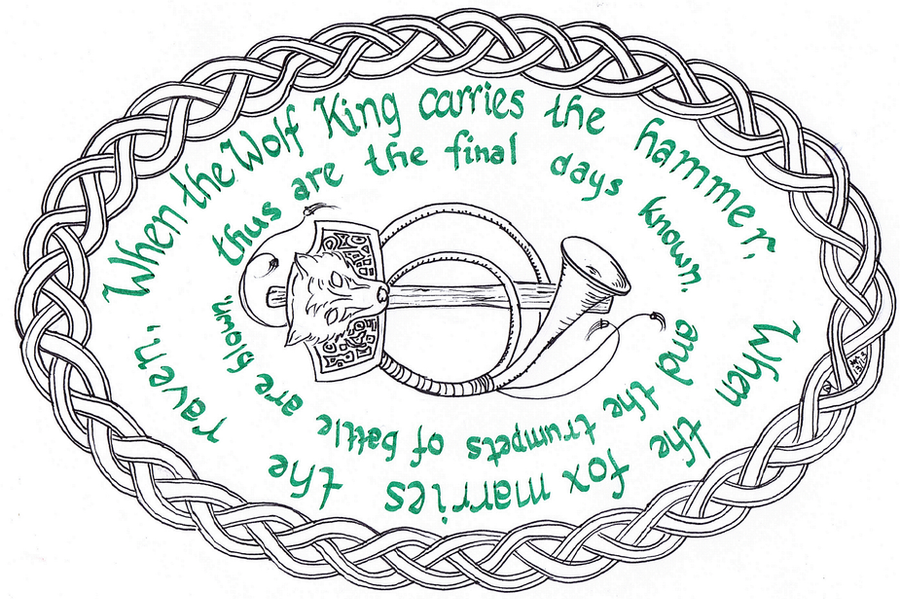 When the Wolf King carries the hammer,
thus are the final days known.
When the fox marries the raven,
and the trumpets of battle are blown,